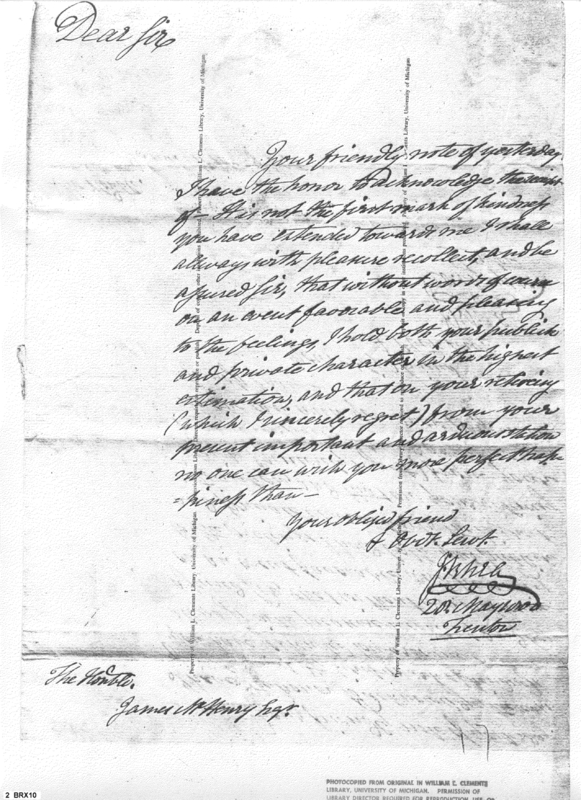 Dear Sir
Your friendly note of yesterday
I have the honor to acknowledge the receipt
of It is not the first mark of kindness
you have extended toward me I shall
allways with pleasure recollect, and be
assured Sir, that without words of course
on an event favorable and pleasing
to the feelings, I hold both your publick
and private character in the highest
estimation, and that on your retiring
(which I sincerely regret) from your
present important and arduous station
no one can wish you more perfect hap-
=piness than—
Your obliged friend
& Obdt. Servt.
2d May 1800
Trenton
The Honble.
James McHenry Esqr.
17
Property of William L. Clements Library, University of Michigan
PHOTOCOPIED FROM ORIGINAL IN WILLIAM L. CLEMENTS
LIBRARY, UNIVERSITY OF MICHIGAN. PERMISSION OF
LIBRARY DIRECTOR REQUIRED FOR REPRODUCTION, USE OR
2 BRX10